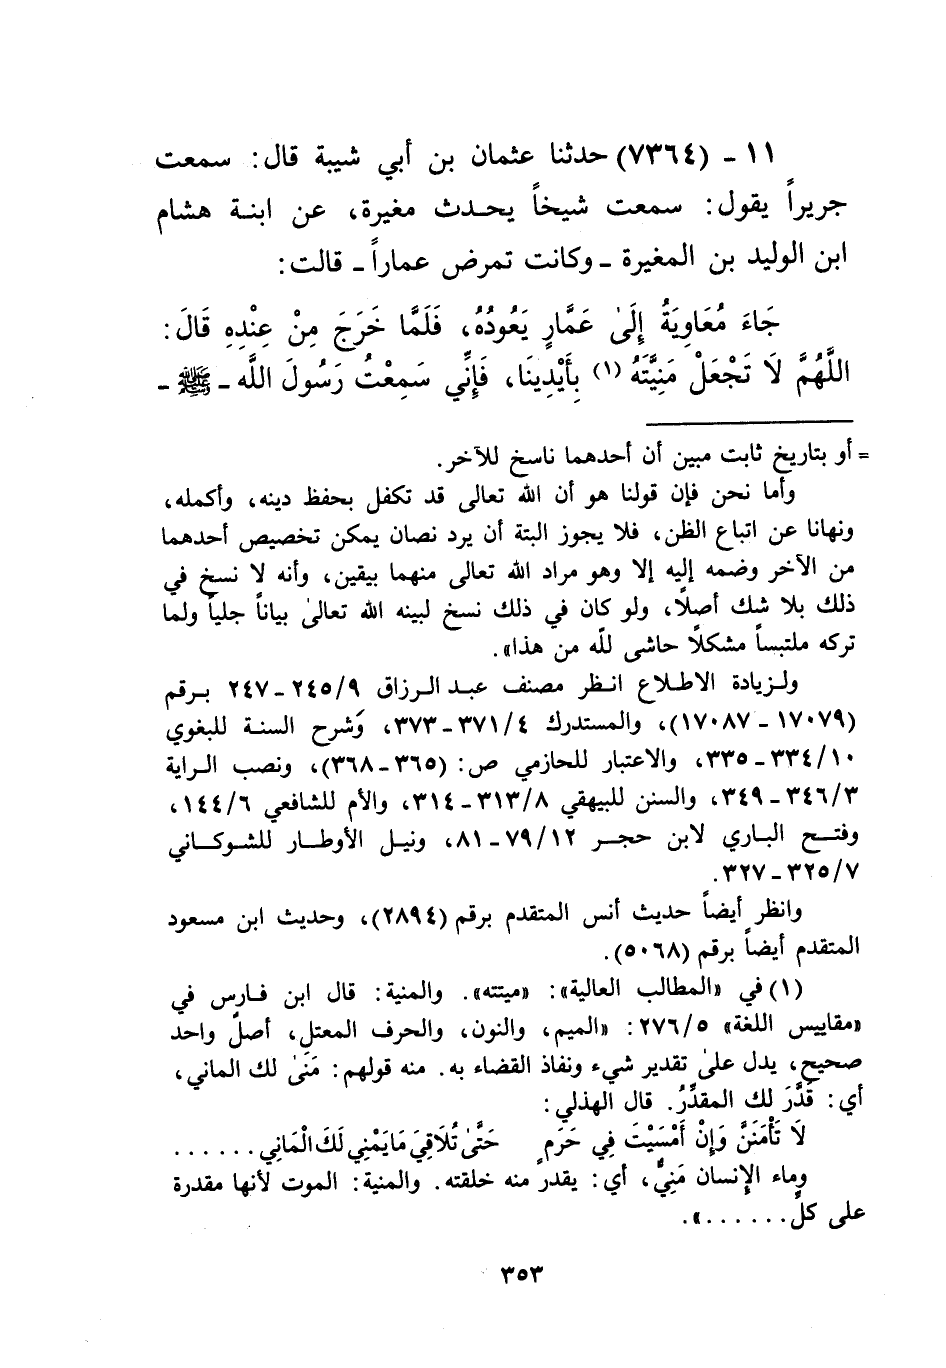 ١١ - (٧٣٦٤) حدثنا عثمان بن أبي شيبة قال: سمعت
جريراً يقول: سمعت شيخاً يحدث مغيرة، عن ابنة هشام
ابن الوليد بن المغيرة - وكانت تمرض عماراً - قالت:
جَاءَ مُعَاوِيَةُ إِلَىٰ عَمَّارٍ يَعُودُهُ، فَلَمَّا خَرَجَ مِنْ عِنْدِهِ قَالَ:
اللَّهُمَّ لَا تَجْعَلْ مَنِيَّتَهُ (١) بِأَيْدِينَا، فَإِنِّي سَمِعْتُ رَسُولَ اللَّهِ - ﷺ -
= أو بتاريخ ثابت مبين أن أحدهما ناسخ للآخر.
وأما نحن فإن قولنا هو أن الله تعالى قد تكفل بحفظ دينه، وأكمله،
ونهانا عن اتباع الظن، فلا يجوز البتة أن يرد نصان يمكن تخصيص أحدهما
من الآخر وضمه إليه إلا وهو مراد الله تعالى منهما بيقين، وأنه لا نسخ في
ذلك بلا شك أصلًا، ولو كان في ذلك نسخ لبينه الله تعالىٰ بياناً جلياً ولما
تركه ملتبساً مشكلًا حاشى للّه من هذا».
ولـزيادة الاطـلاع انـظر مصنف عبـد الـرزاق ٢٤٥/٩ - ٢٤٧ بـرقم
(١٧٠٧٩ - ١٧٠٨٧)، والمستدرك ٣٧١/٤ - ٣٧٣، وشرح السنـة للبغوي
٣٣٤/١٠ - ٣٣٥، والاعتبار للحازمي ص: (٣٦٥ - ٣٦٨)، ونصب الـراية
٣٤٦/٣ - ٣٤٩، والسنن للبيهقي ٣١٣/٨ - ٣١٤، والأم للشافعي ١٤٤/٦،
وفتـح البـاري لابن حجـر ٧٩/١٢ - ٨١، ونيـل الأوطـار للشـوكـاني
٣٢٥/٧ - ٣٢٧.
وانظر أيضاً حديث أنس المتقدم برقم (٢٨٩٤)، وحديث ابن مسعود
المتقدم أيضاً برقم (٥٠٦٨).
(١) في «المطالب العالية»: «ميتته». والمنية: قال ابن فـارس في
«مقاييس اللغة» ٢٧٦/٥: «الميم، والنون، والحرف المعتل، أصلٌ واحد
صحيح، يدل علىٰ تقدير شيء ونفاذ القضاء به. منه قولهم: مَنَىٰ لك الماني،
أي: قَدَّرَ لك المقدِّرُ. قال الهذلي:
لَا تَأْمَنَنَّ وَإِنْ أَمْسَيْتَ فِي حَرَمٍ حَتَّىٰ تُلَاقِيَ مَا يَمْنِي لَكَ الْمَانِي . . . . . .
وماء الإنسان مَنِيٌّ، أي: يقدر منه خلقته. والمنية: الموت لأنها مقدرة
على كلٍّ . . . . . . ».
٣٥٣